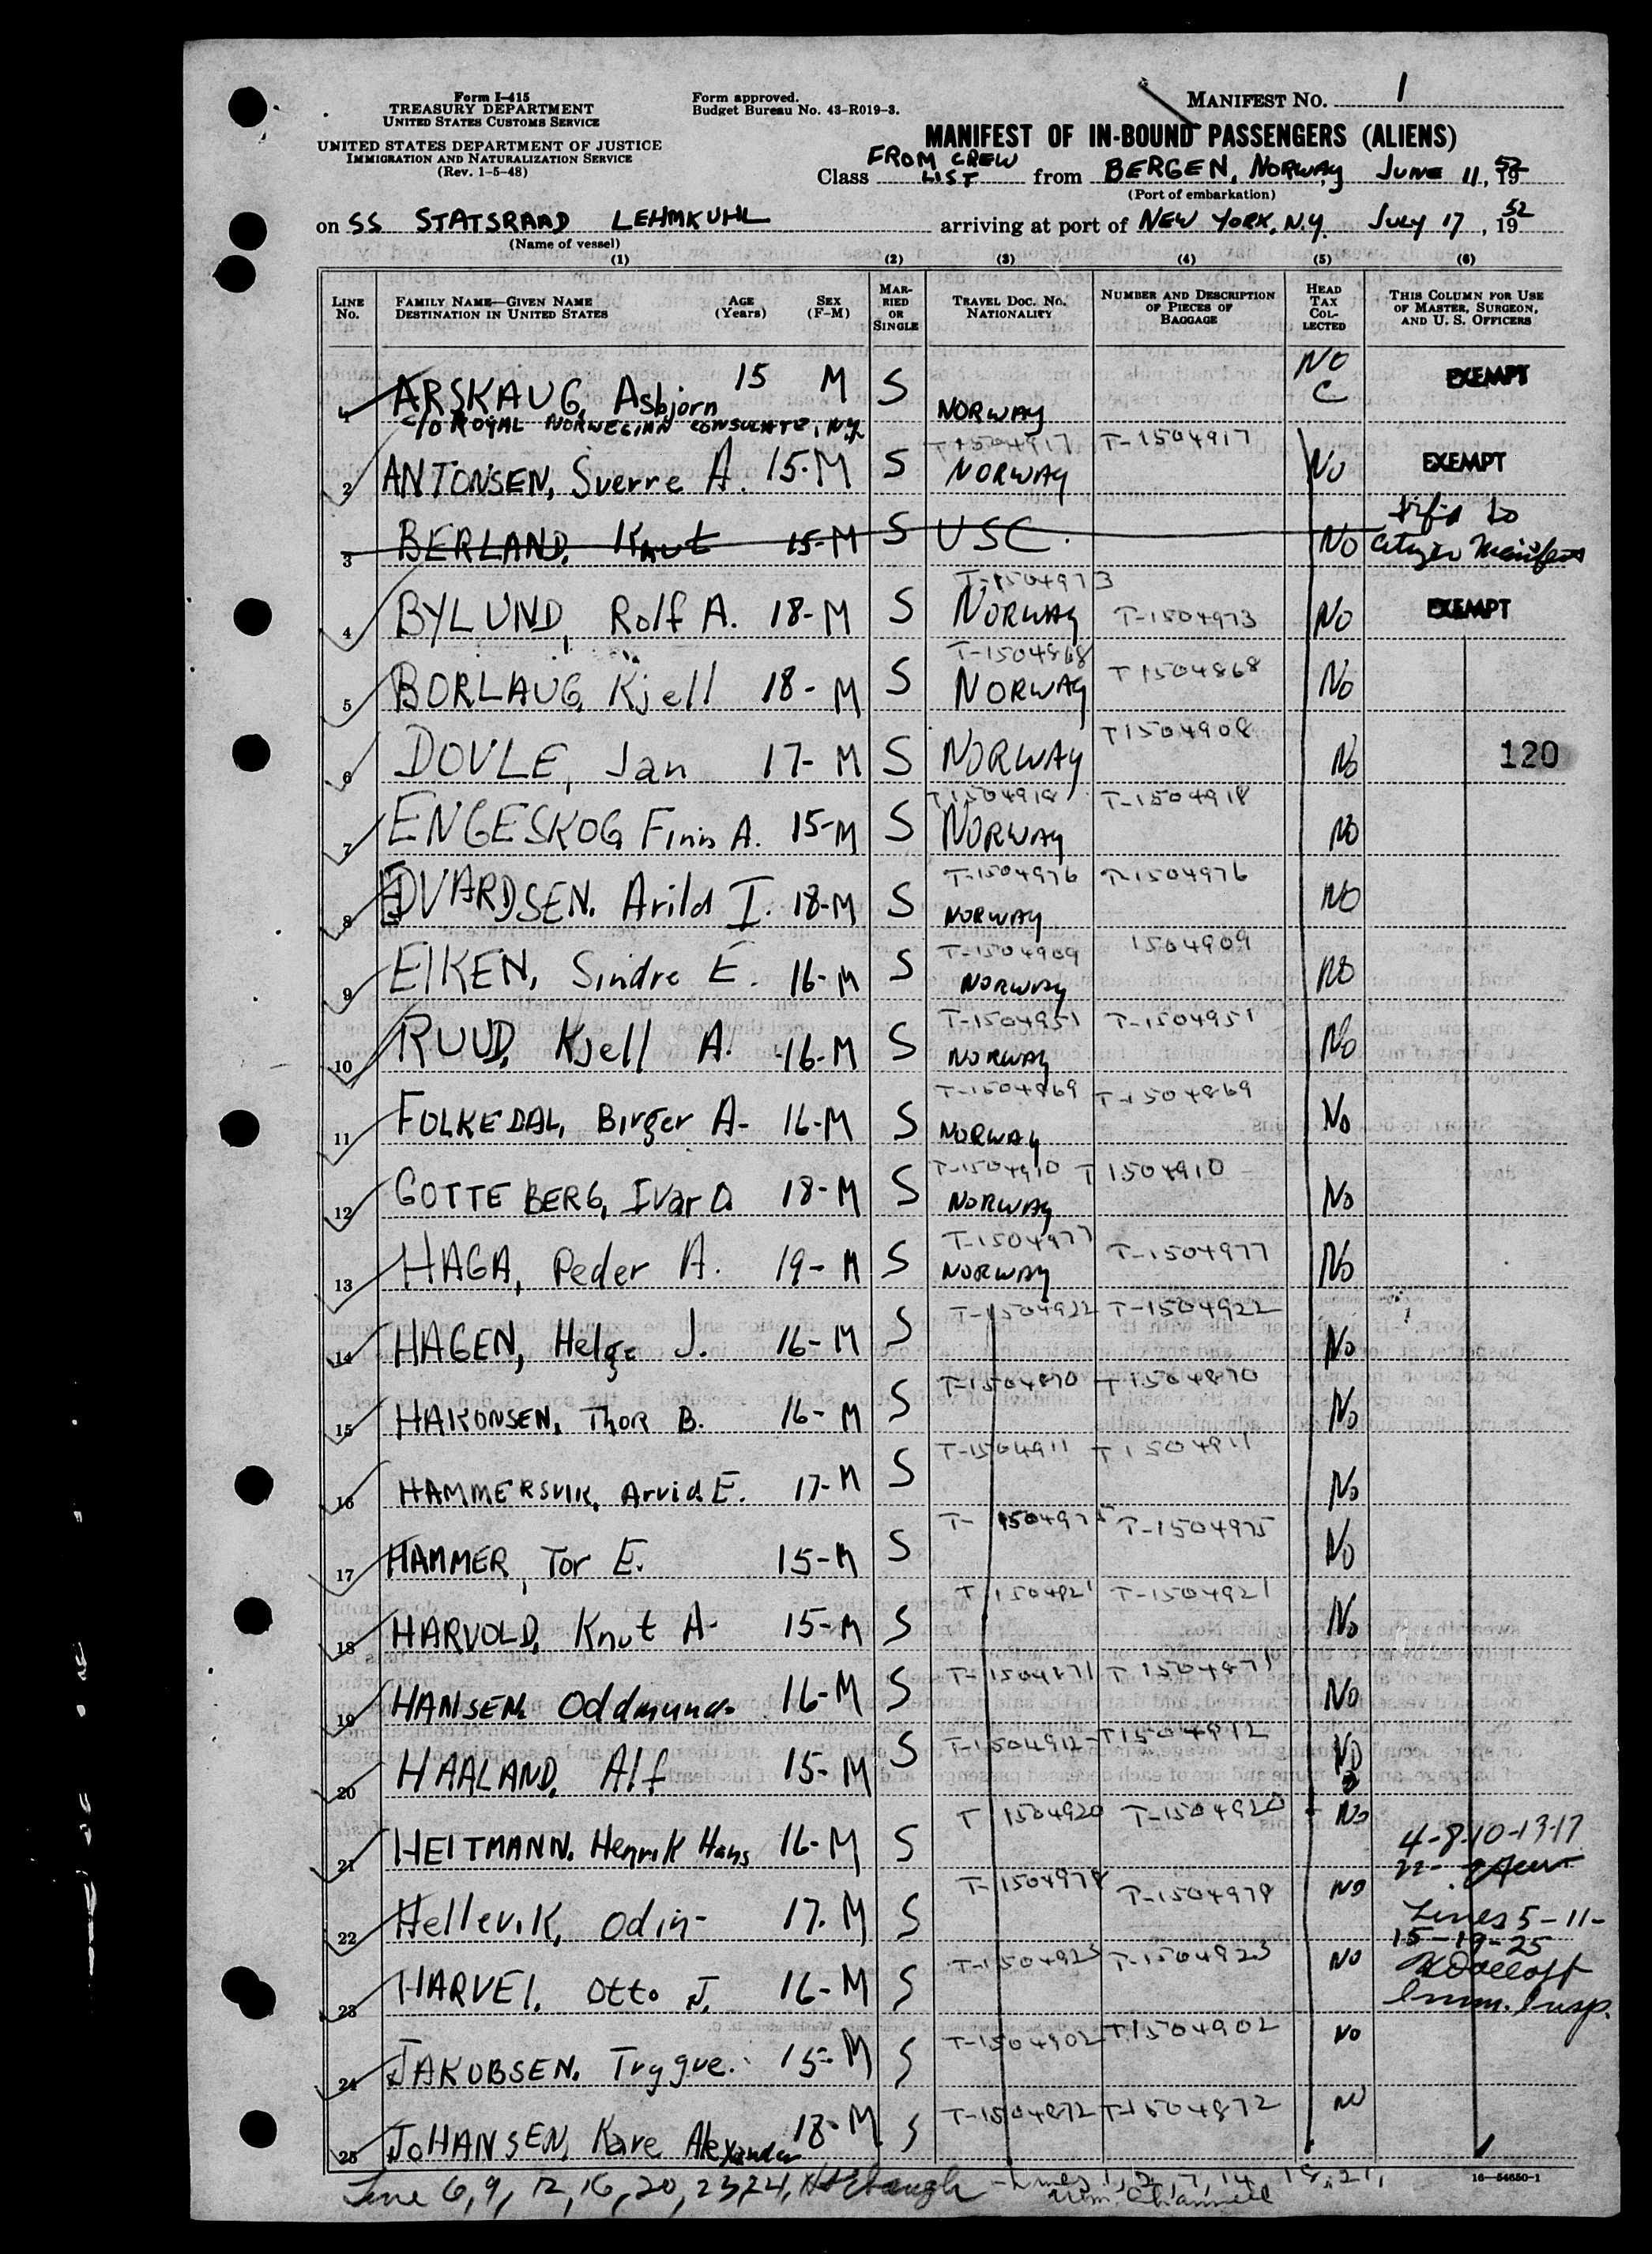 Form I-415
TREASURY DEPARTMENT
UNITED STATES CUSTOMS SERVICE
UNITED STATES DEPARTMENT OF JUSTICE
IMMIGRATION AND NATURALIZATION SERVICE
(Rev. 1-5-48)
Form approved.
Budget Bureau No. 43-R019-3.
MANIFEST NO. 1
MANIFEST OF IN-BOUND PASSENGERS (ALIENS)
Class FROM CREW LIST from BERGEN, NORWAY JUNE 11, 1952
(Port of embarkation)
on SS STATSRAAD LEHMKUHL arriving at port of NEW YORK, N.Y. JULY 17, 1952
(Name of vessel)
(1) (2) (3) (4) (5) (6)
LINE No. FAMILY NAME—GIVEN NAME DESTINATION IN UNITED STATES AGE (Years) SEX (F-M) MARRIED OR SINGLE TRAVEL DOC. NO. NATIONALITY NUMBER AND DESCRIPTION OF PIECES OF BAGGAGE HEAD TAX COLLECTED THIS COLUMN FOR USE OF MASTER, SURGEON, AND U. S. OFFICERS
1 ARSKAUG, Asbjorn 15 M S NORWAY NO C EXEMPT
c/o ROYAL NORWEGIAN CONSULATE, N.Y.
2 ANTONSEN, Sverre A. 15-M S T-1504917 NORWAY T-1504917 NO EXEMPT
3 BERLAND, Knut 15-M S USC. NO trf'd to citizen manifest
4 BYLUND, Rolf A. 18-M S T-1504973 NORWAY T-1504973 NO EXEMPT
5 BORLAUG, Kjell 18-M S T-1504868 NORWAY T 1504868 NO
6 DOVLE, Jan 17-M S NORWAY T1504908 NO 120
7 ENGESKOG, Finn A. 15-M S T1504918 NORWAY T-1504918 NO
8 EDVARDSEN, Arild I. 18-M S T-1504976 NORWAY T-1504976 NO
9 EIKEN, Sindre E. 16-M S T-1504909 NORWAY 1504909 NO
10 RUUD, Kjell A. 16-M S T-1504951 NORWAY T-1504951 NO
11 FOLKEDAL, Birger A- 16-M S T-1504869 NORWAY T-1504869 NO
12 GOTTEBERG, Ivar O. 18-M S T-1504910 NORWAY T 1504910 NO
13 HAGA, Peder A. 19-M S T-1504977 NORWAY T-1504977 NO
14 HAGEN, Helge J. 16-M S T-1504922 T-1504922 No
15 HAKONSEN, Thor B. 16-M S T-1504870 T1504870 No
16 HAMMERSVIK, Arvid E. 17-M S T-1504911 T1504911 No
17 HAMMER, Tor E. 15-M S T-1504975 T-1504975 No
18 HARVOLD, Knut A- 15-M S T 1504921 T-1504921 No
19 HANSEN, Oddmund 16-M S T-1504871 T 1504871 No
20 HAALAND, Alf 15-M S T-1504912 T1504912 NO
21 HEITMANN, Henrik Hans 16-M S T 1504920 T-1504920 No 4-8-10-13-17
22-
22 Hellevik, Odin- 17-M S T-1504978 T-1504978 NO Lines 5-11-
15-19-25
23 HARVEI, Otto J. 16-M S T-1504923 T-1504923 NO Imm. Insp.
24 JAKOBSEN, Trygve. 15-M S T-1504902 T1504902 NO
25 JOHANSEN, Kare Alexander 18-M S T-1504872 T-1504872 NO
Line 6, 9, 12, 16, 20, 23, 24, Lines 1, 2, 7, 14, 18, 21,
16—54650-1